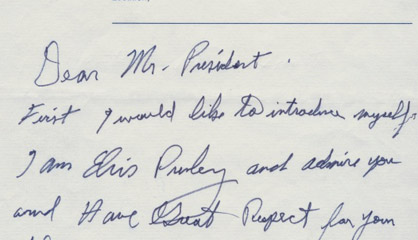 Dear Mr. President.
First I would like to introduce myself.
I am Elvis Presley and admire you
and Have Great Respect for your